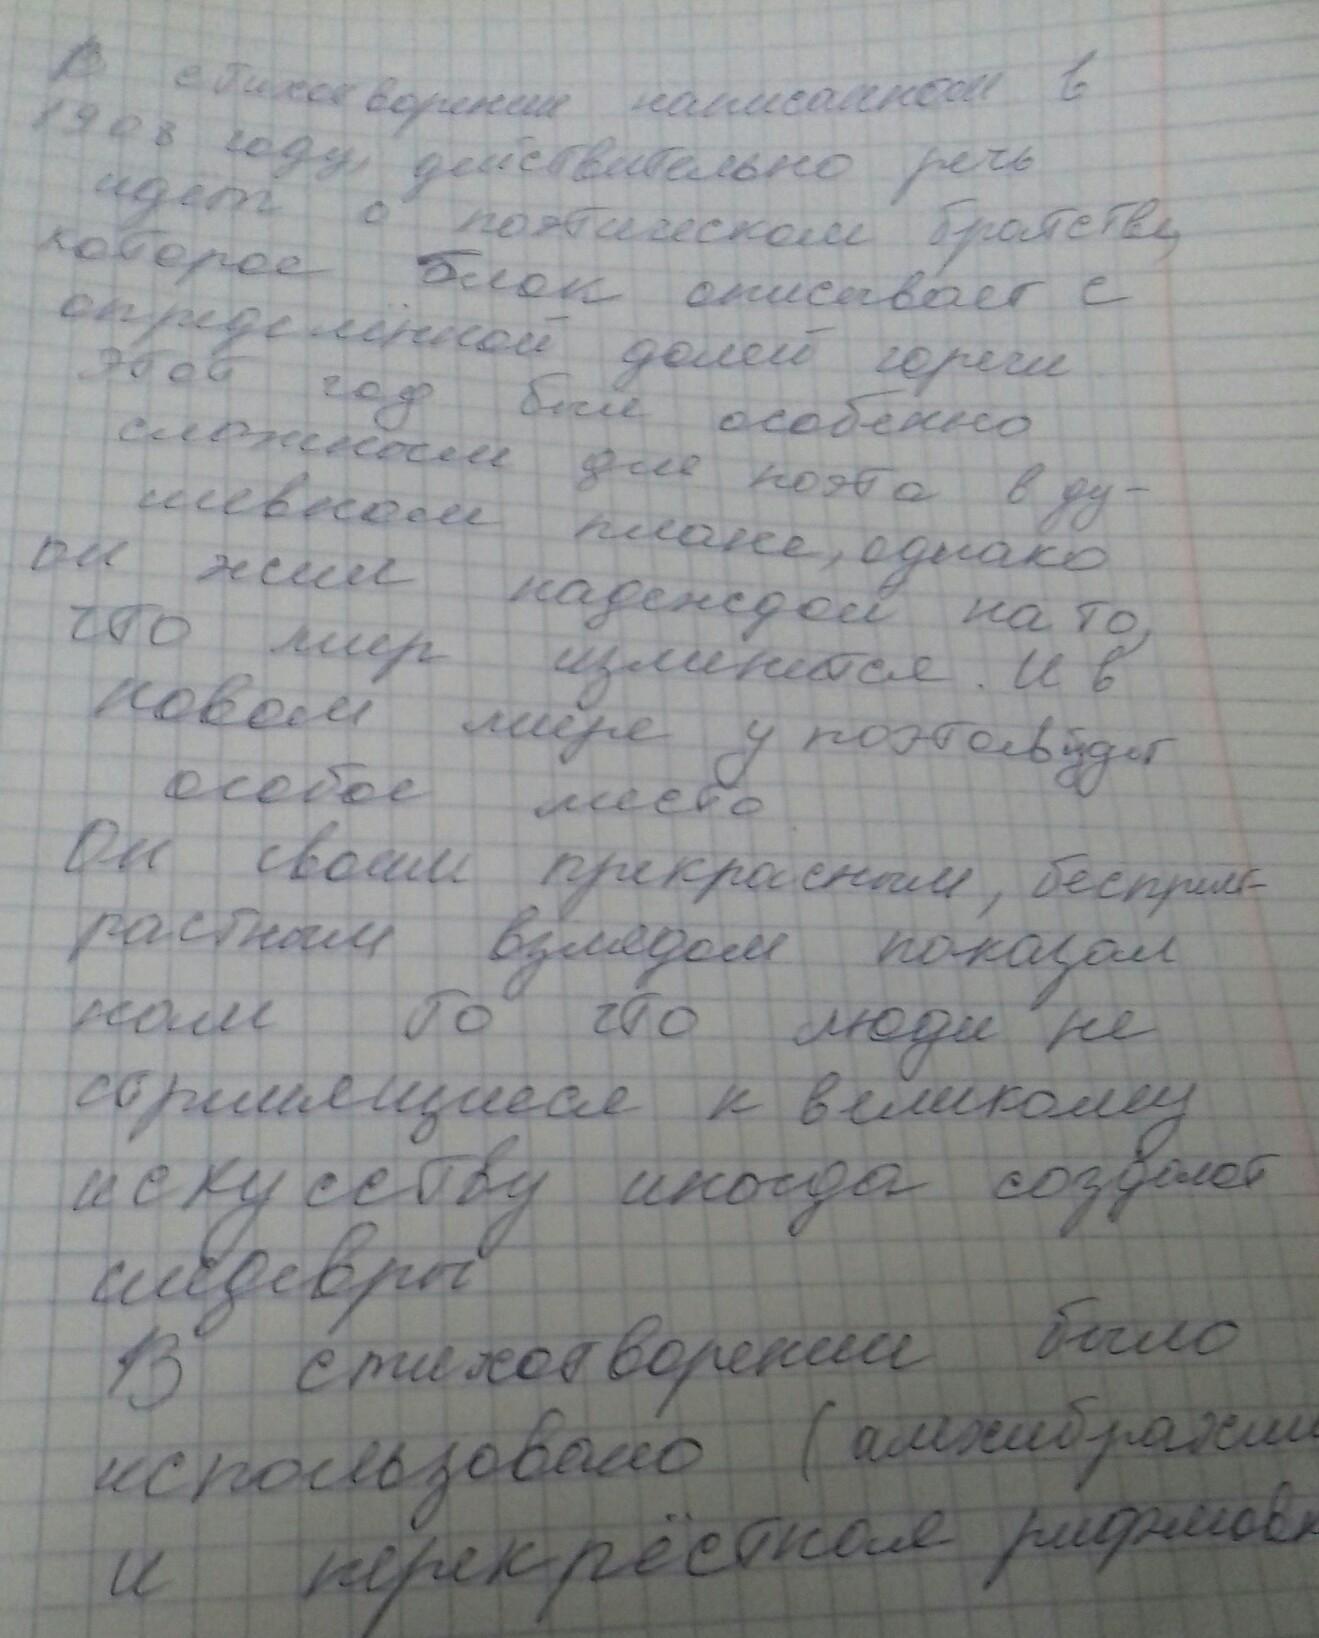 В стихотворении написанном в
1908 году, действительно речь
идёт о поэтическом братстве,
которое Блок описывает с
определённой долей горечи
этот год был особенно
сложным для поэта в ду-
шевном плане, однако
он жил надеждой на то,
что мир изменится. И в
новом мире у поэтов будет
особое место
Он своим прекрасным, бесприст-
растным взглядом показал
нам то что люди не
стримящиеся к великому
искусству иногда создают
шедевры
В стихотворении было
использовано (амхибрахий
и перекрёстная рифмовк